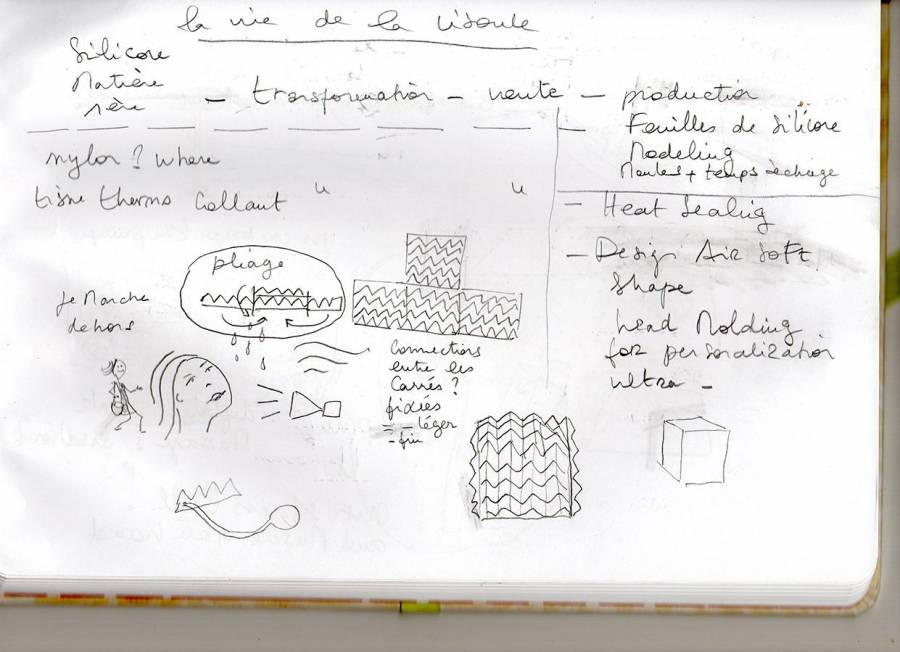 la vie de la visoule
Silicone
Matière
1ère
- transformation - vente - production
Feuilles de Silicone
Modeling
Moules + temps séchage
nylon ? where
tissu thermo collant " "
- Heat Sealing
- Design Air Soft
Shape
head Molding
for personalization
ultra -
pliage
Je Marche
dehors
Connections
entre les
Carrés ?
fixées
- léger
- fin